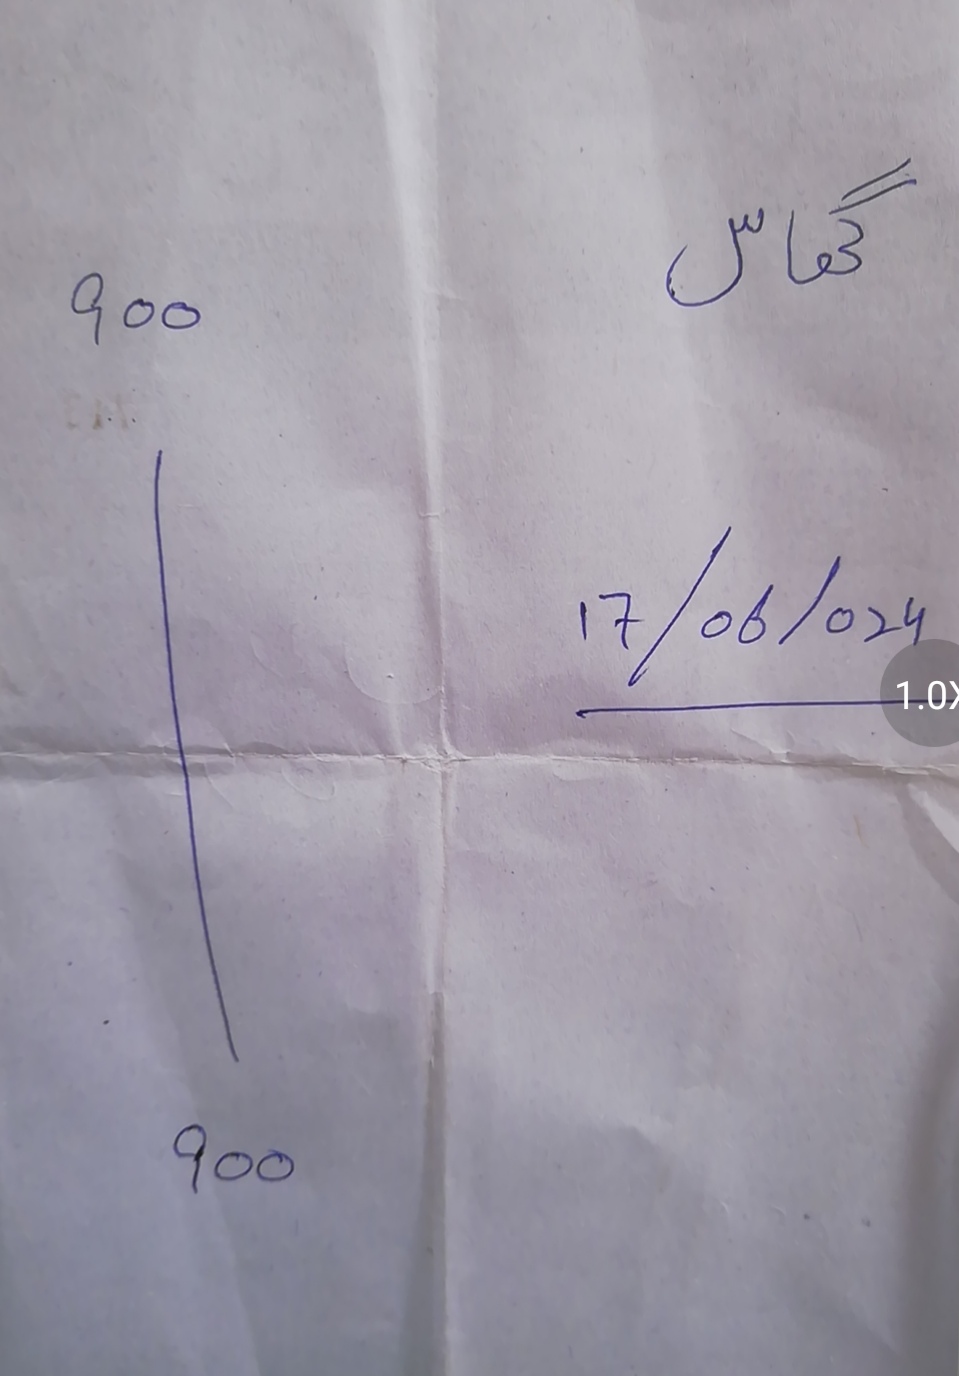 گھاس
900
17/06/024
1.0X
900